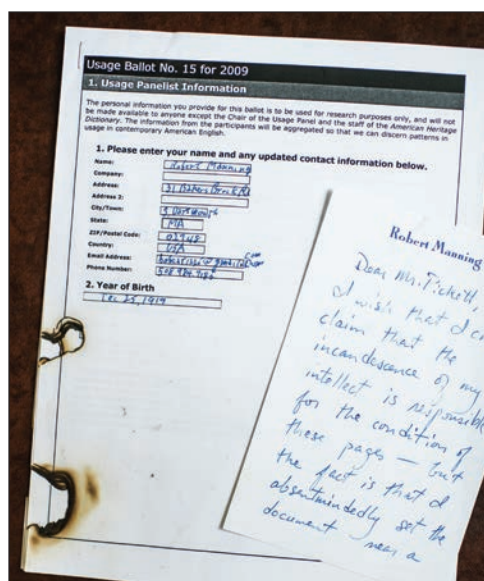 Usage Ballot No. 15 for 2009
1. Usage Panelist Information
The personal information you provide for this ballot is to be used for research purposes only, and will not
be made available to anyone except the Chair of the Usage Panel and the staff of the American Heritage
Dictionary. The information from the participants will be aggregated so that we can discern patterns in
usage in contemporary American English.
1. Please enter your name and any updated contact information below.
Name: Robert Manning
Company:
Address:
Address 2:
City/Town:
State: MA
ZIP/Postal Code:
Country: USA
Email Address:
Phone Number:
2. Year of Birth
Dec 25, 1919
Robert Manning
Dear Mr. Pickett,
I wish that I
claim that the
incandescence of my
intellect is responsible
for the condition of
these pages — but
the fact is that I
absentmindedly set the
document near a